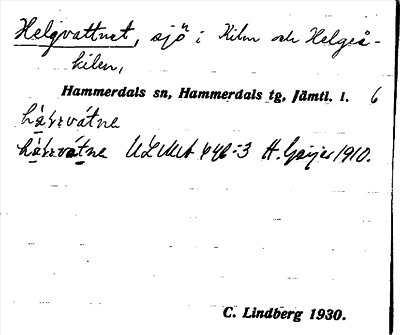 Helgvattnet, sjö i Kilen och Helgeå-
kilen,
Hammerdals sn, Hammerdals tg, Jämtl. l. 6
ULMA 446:3 H. Geijer 1910.
C. Lindberg 1930.